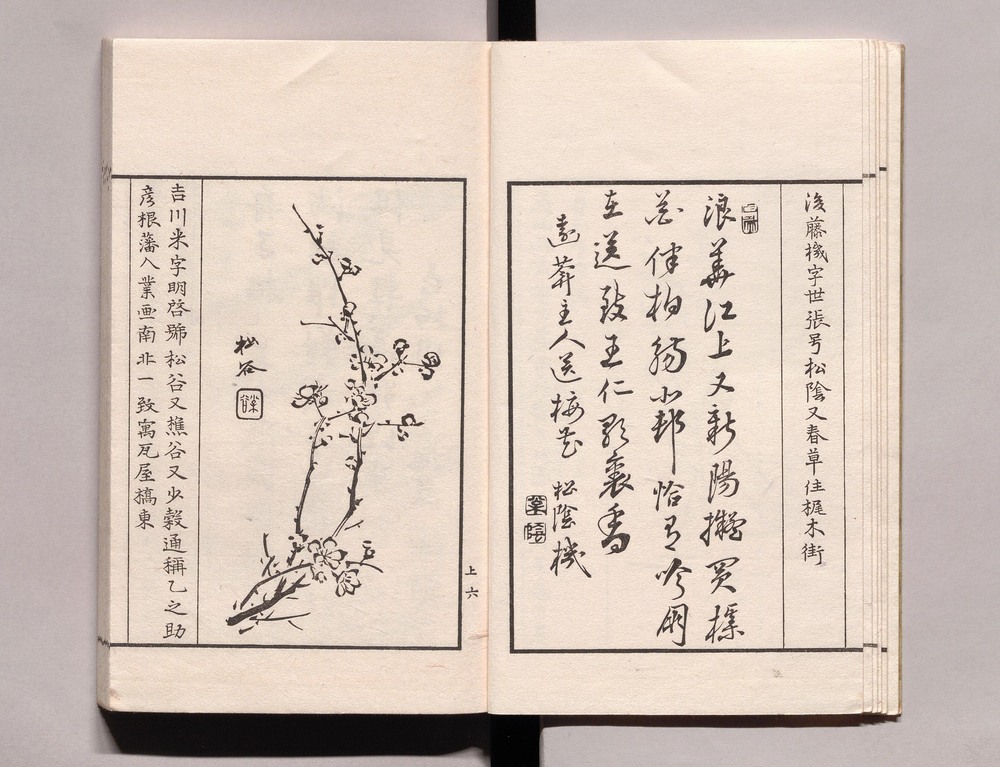 後藤機字世張号松陰又春草住梶木街
浪華江上又新陽擬買
花伴柏觴小邨恰有吟朋
在送致王仁歌裏香
主人送梅花 松陰機
松陰
上六
松谷
吉川米字明啓号松谷又樵谷又少穀通称乙之助
彦根藩人業画南北一致寓瓦屋橋東